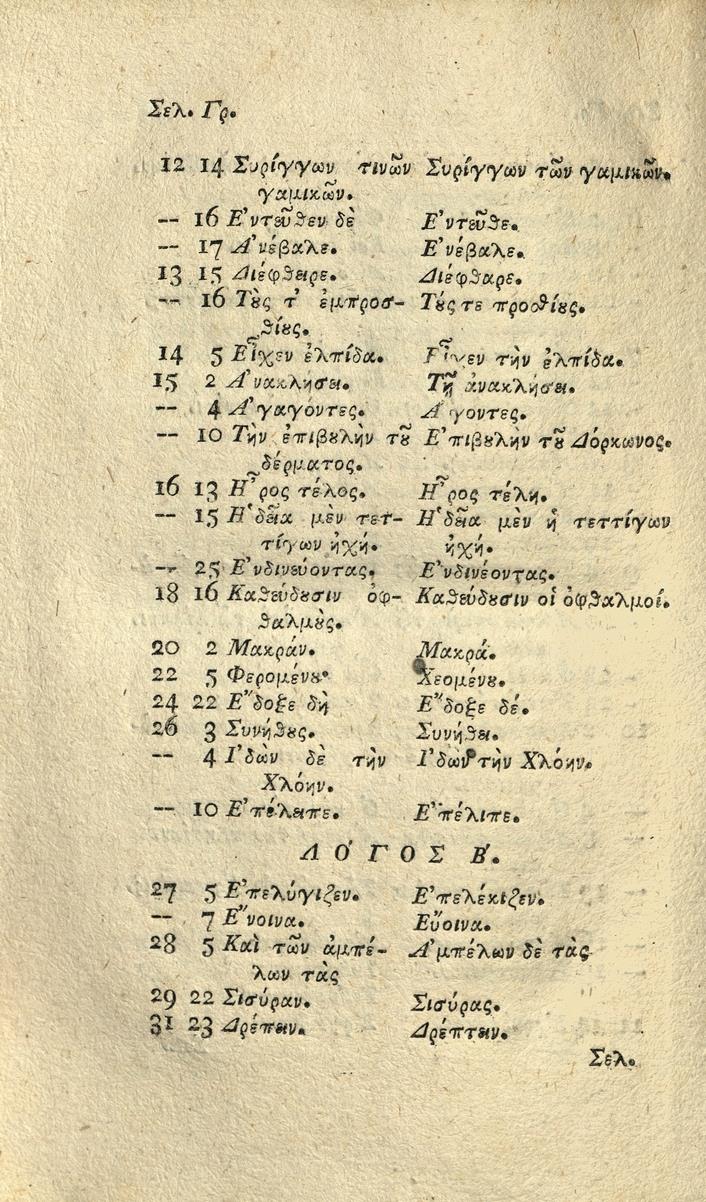 Σελ. Γρ.
12 14 Συρίγγων τινῶν Συρίγγων τῶν γαμικῶν.
γαμικῶν.
-- 16 Ε'ντεῦθεν δὲ Ε'ντεῦθε.
-- 17 Α'νέβαλε. Ε'νέβαλε.
13 15 Διέφθειρε. Διέφθαρε.
-- 16 Τοὺς τ' ἐμπροσ- Τούς τε προσθίους.
θίους.
14 5 Εἶχεν ἐλπίδα. Εἶχεν τὴν ἐλπίδα.
15 2 Α'νακλήσει. Τῇ ἀνακλήσει.
-- 4 Α'γαγόντες. Α'γοντες.
-- 10 Τὴν ἐπιβουλὴν τοῦ Ε'πιβουλὴν τοῦ Δόρκωνος.
δέρματος.
16 13 Η῏ρος τέλος. Η῏ρος τέλη.
-- 15 Η῾δεῖα μὲν τετ- Η῾δεῖα μὲν ἡ τεττίγων
τίγων ἠχή. ἠχή.
-- 25 Ε'νδινεύοντας. Ε'νδινέοντας.
18 16 Καθεύδουσιν ὀφ- Καθεύδουσιν οἱ ὀφθαλμοί.
θαλμοὺς.
20 2 Μακράν. Μακρά.
22 5 Φερομένου. Χεομένου.
24 22 Ε῎δοξε δὴ Ε῎δοξε δέ.
26 3 Συνήθους. Συνήθει.
-- 4 Ι'δὼν δὲ τὴν Ι'δὼν τὴν Χλόην.
Χλόην.
-- 10 Ε'πέλειπε. Ε'πέλιπε.
ΛΟ'ΓΟΣ Β'.
27 5 Ε'πελύγιζεν. Ε'πελέκιζεν.
-- 7 Ε῎νοινα. Εὔοινα.
28 5 Καὶ τῶν ἀμπέ- Α'μπέλων δὲ τὰς
λων τὰς
29 22 Σισύραν. Σισύρας.
31 23 Δρέπειν. Δρέπτειν.
Σελ.